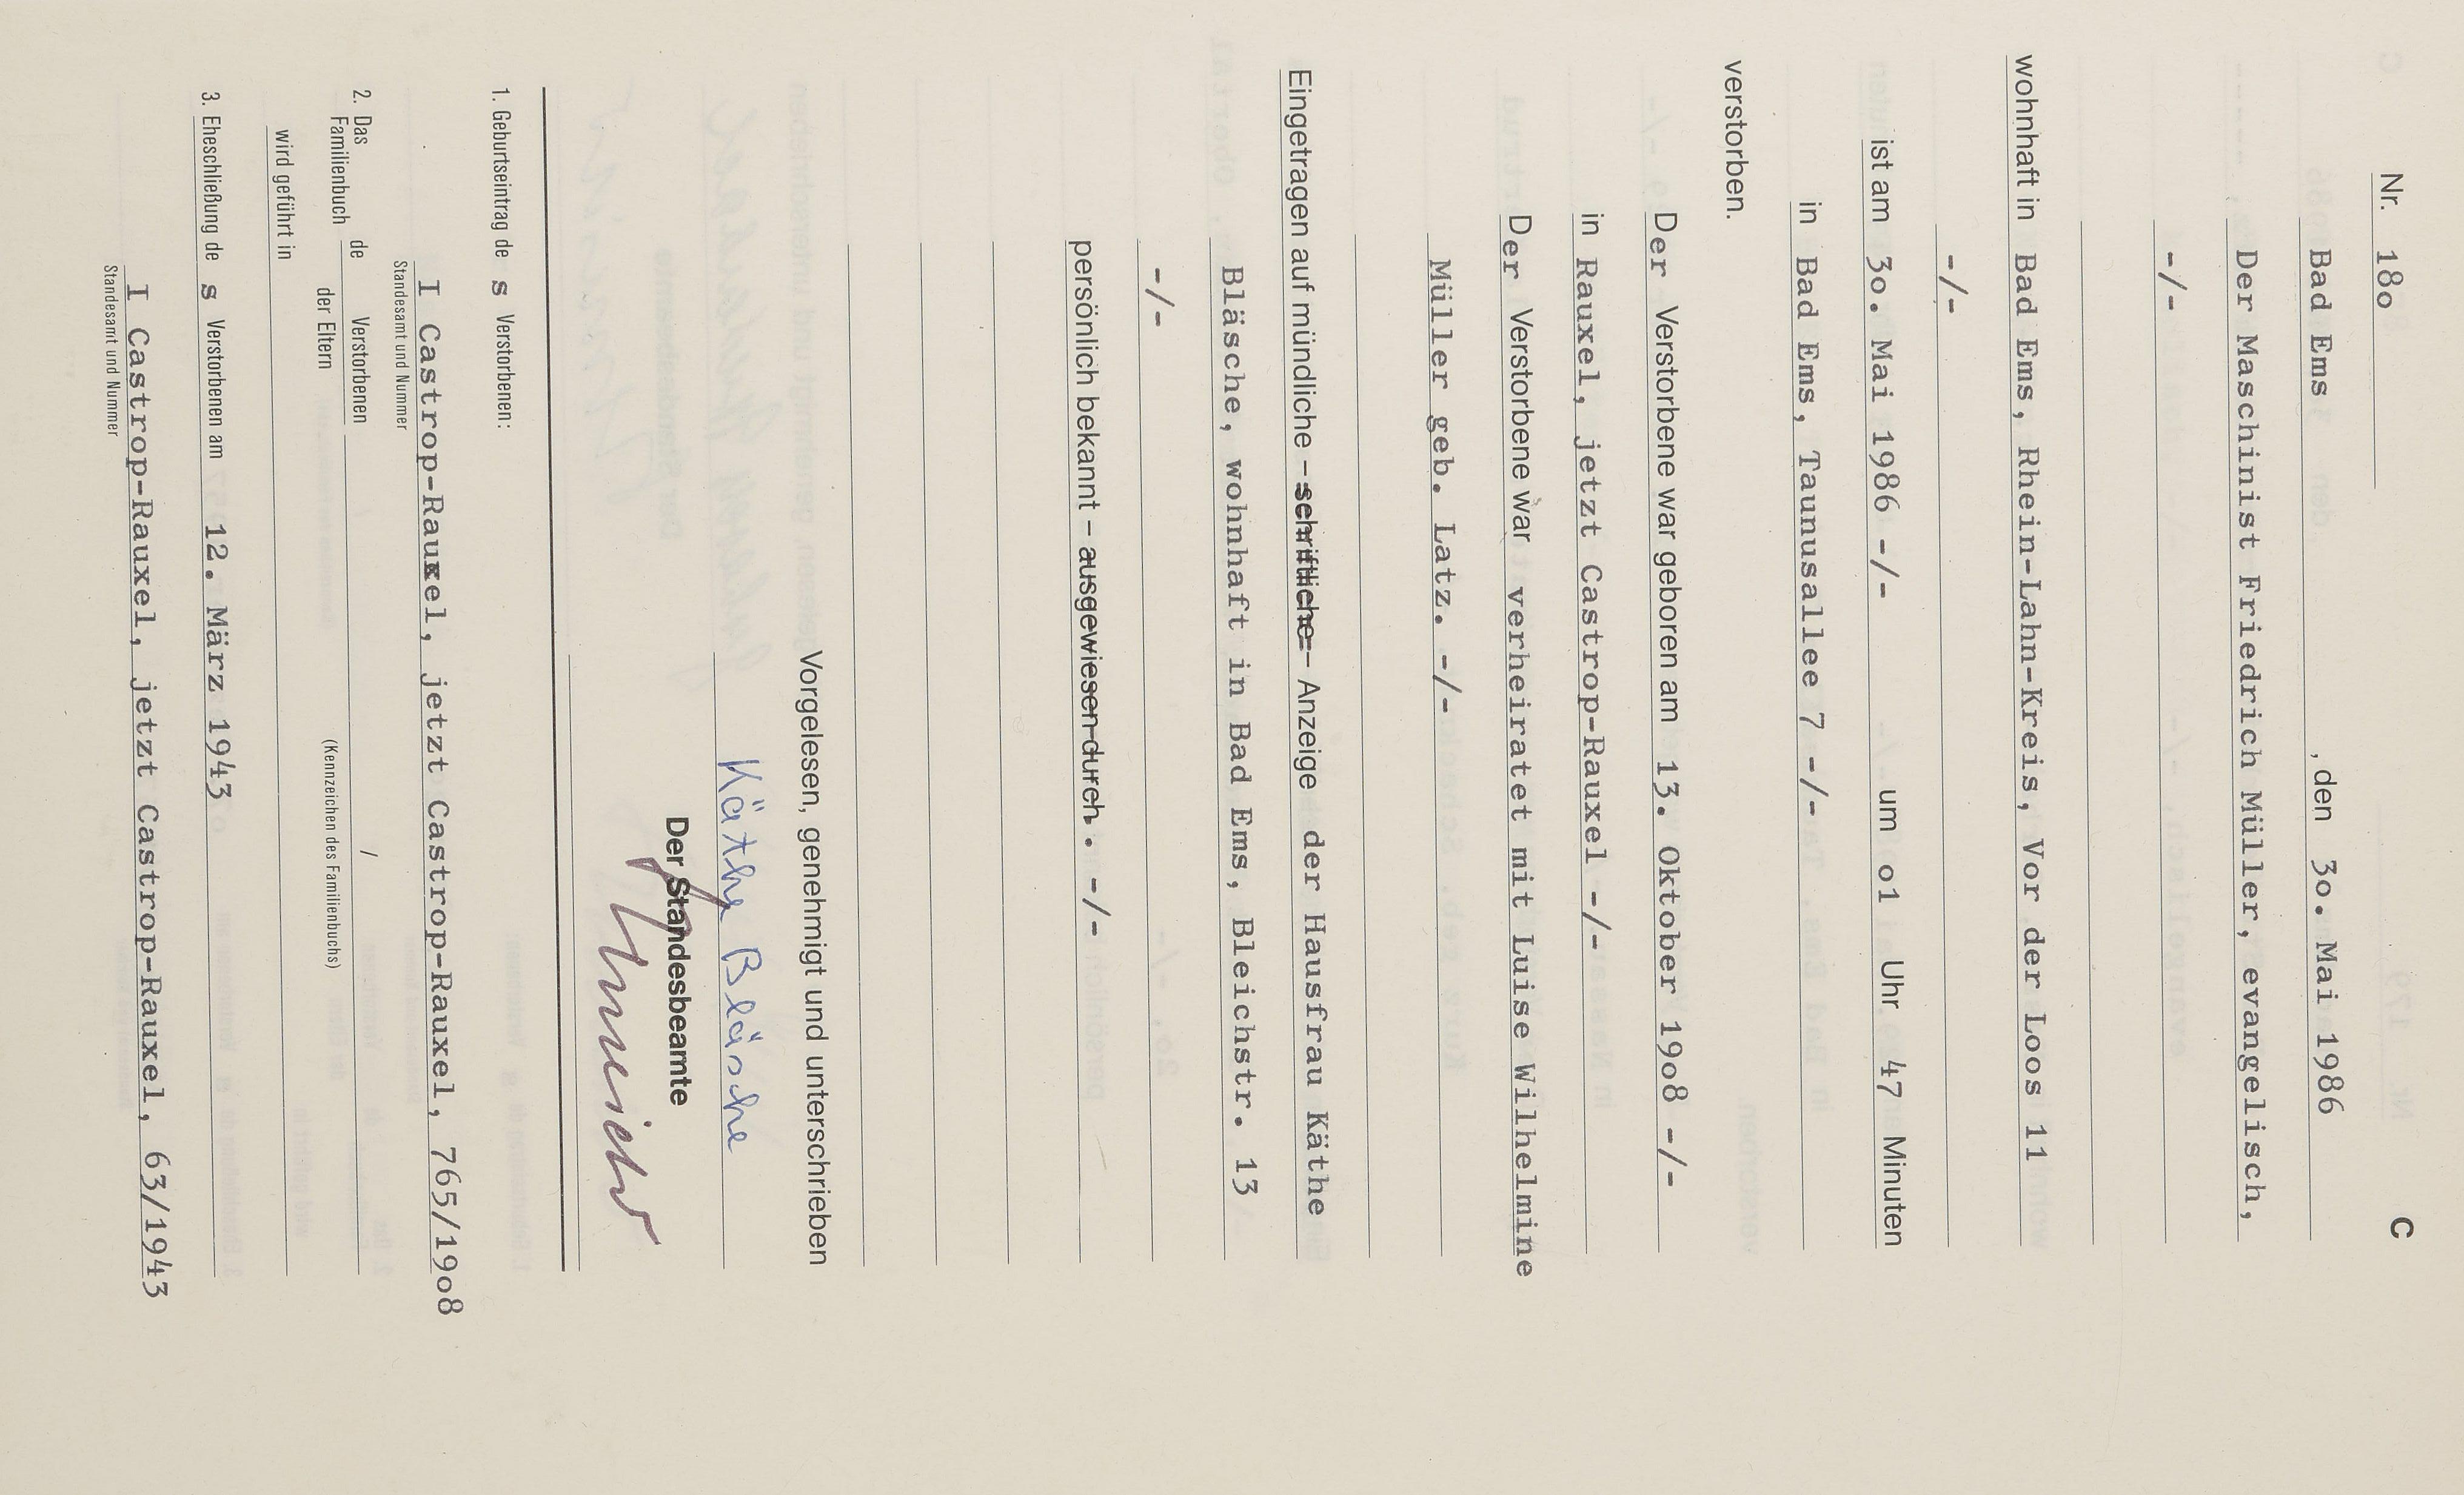 C
Nr. 18o
Bad Ems, den 3o. Mai 1986
Der Maschinist Friedrich Müller, evangelisch,
-/-
wohnhaft in Bad Ems, Rhein-Lahn-Kreis, Vor der Loos 11
-/-
ist am 3o. Mai 1986 -/- um o1 Uhr 47 Minuten
in Bad Ems, Taunusallee 7 -/-
verstorben.
Der Verstorbene war geboren am 13. Oktober 19o8 -/-
in Rauxel, jetzt Castrop-Rauxel -/-
Der Verstorbene war verheiratet mit Luise Wilhelmine
Müller geb. Latz. -/-
Eingetragen auf mündliche – schriftliche – Anzeige der Hausfrau Käthe
Bläsche, wohnhaft in Bad Ems, Bleichstr. 13
-/-
persönlich bekannt – ausgewiesen durch. -/-
Vorgelesen, genehmigt und unterschrieben
Käthe Bläsche
Der Standesbeamte
1. Geburtseintrag des Verstorbenen:
I Castrop-Rauxel, jetzt Castrop-Rauxel, 765/19o8
Standesamt und Nummer
2. Das Familienbuch de Verstorbenen /
der Eltern (Kennzeichen des Familienbuchs)
wird geführt in
3. Eheschließung des Verstorbenen am 12. März 1943
I Castrop-Rauxel, jetzt Castrop-Rauxel, 63/1943
Standesamt und Nummer